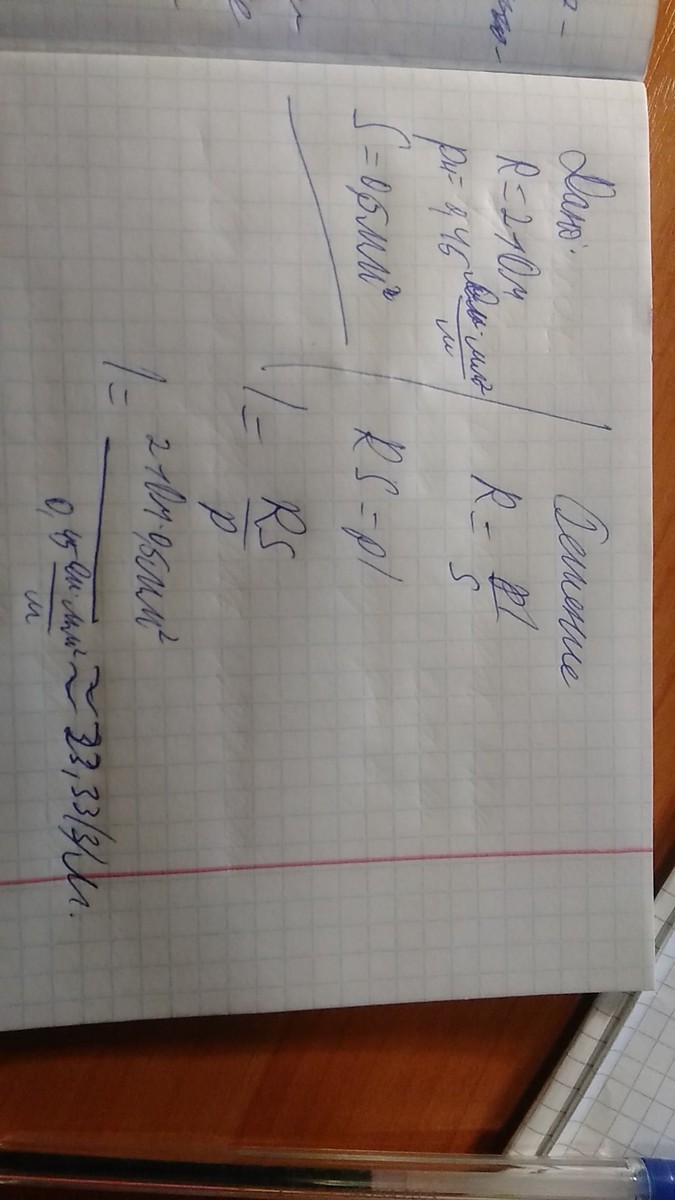 Дано:
R = 21 Ом
ρн = 0,45 Ом·мм²/м
S = 0,5 мм²
Решение
R = ρl/S
RS = ρl
l = RS/ρ
l = 21 Ом·0,5 мм²/0,45 Ом·мм²/м ≈ 23,33(3) м.